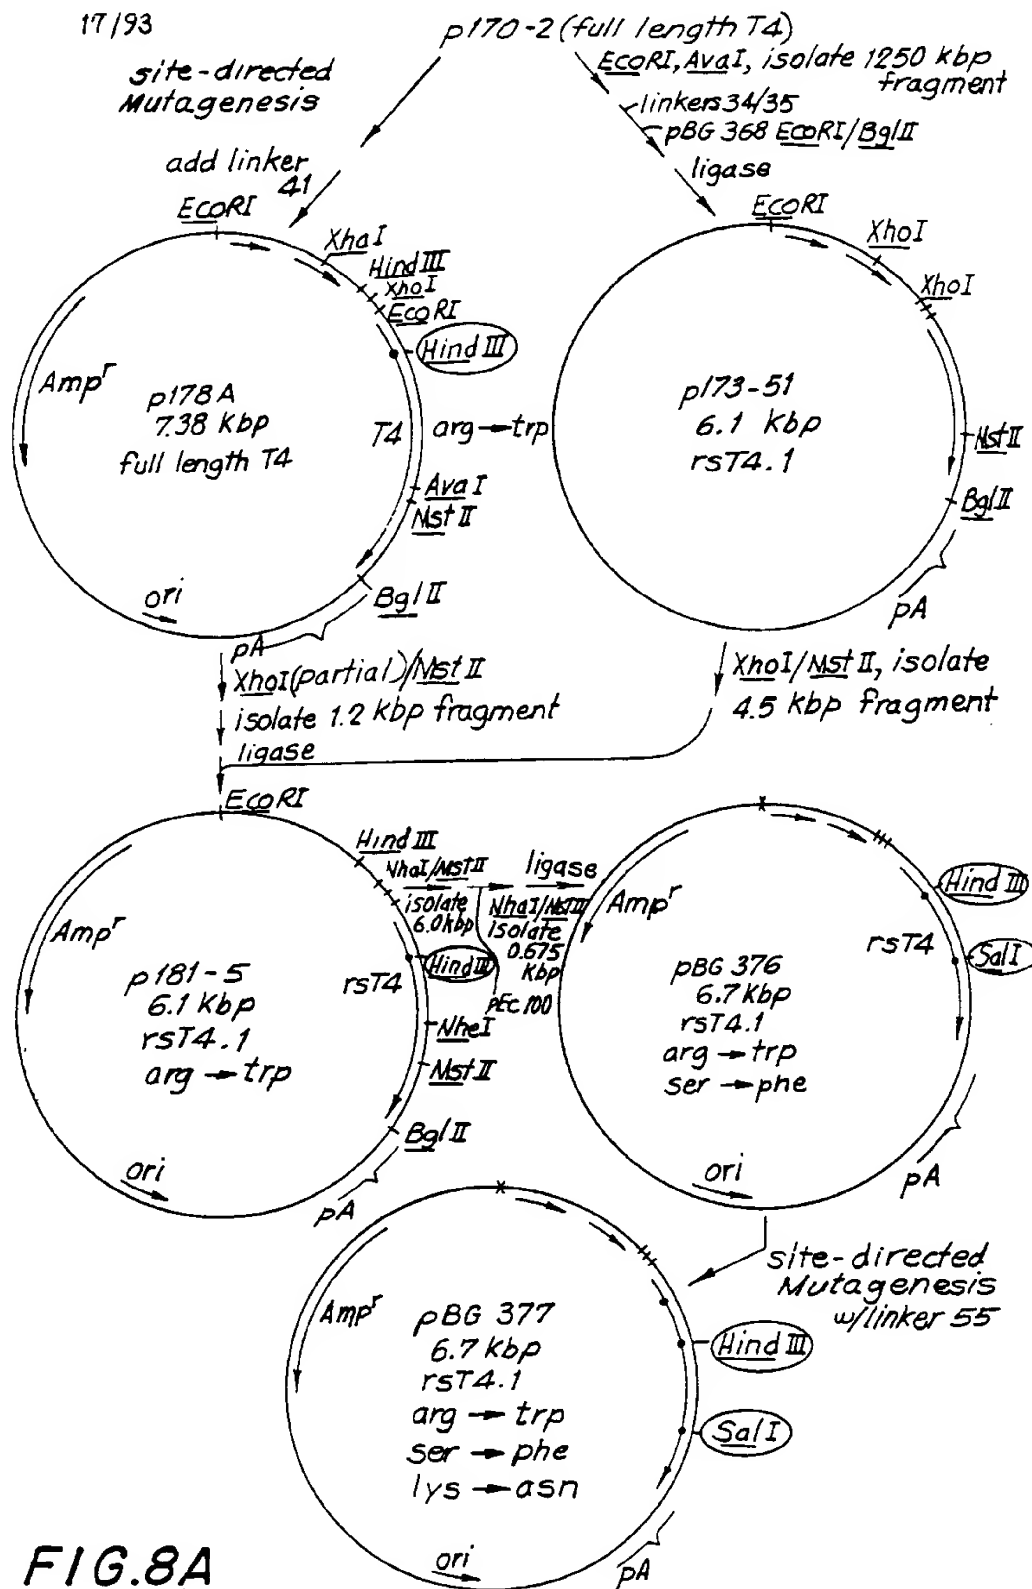 17/93
p170-2 (full length T4)
site-directed
Mutagenesis
EcoRI, AvaI, isolate 1250 kbp
fragment
linkers 34/35
pBG 368 EcoRI/BglII
ligase
add linker
41
EcoRI
XhaI
Hind III
XhoI
EcoRI
Hind III
Ampʳ
p178A
7.38 Kbp
full length T4
T4
arg → trp
AvaI
Mst II
Bgl II
ori
pA
EcoRI
XhoI
XhoI
p173-51
6.1 Kbp
rsT4.1
Nst II
Bgl II
pA
XhoI(partial)/Mst II
isolate 1.2 kbp fragment
ligase
XhoI/Mst II, isolate
4.5 kbp fragment
EcoRI
Hind III
NhaI/Mst II
isolate
6.0 kbp
Ampʳ
p181-5
6.1 Kbp
rsT4.1
arg → trp
rsT4
Hind III
NheI
Mst II
Bgl II
ori
pA
ligase
NhaI/Nst II
isolate
0.675
Kbp
pEC100
Ampʳ
pBG 376
6.7 Kbp
rsT4.1
arg → trp
ser → phe
rsT4
Hind III
SalI
ori
pA
site-directed
Mutagenesis
w/linker 55
Ampʳ
pBG 377
6.7 Kbp
rsT4.1
arg → trp
ser → phe
lys → asn
Hind III
Sal I
ori
pA
FIG.8A